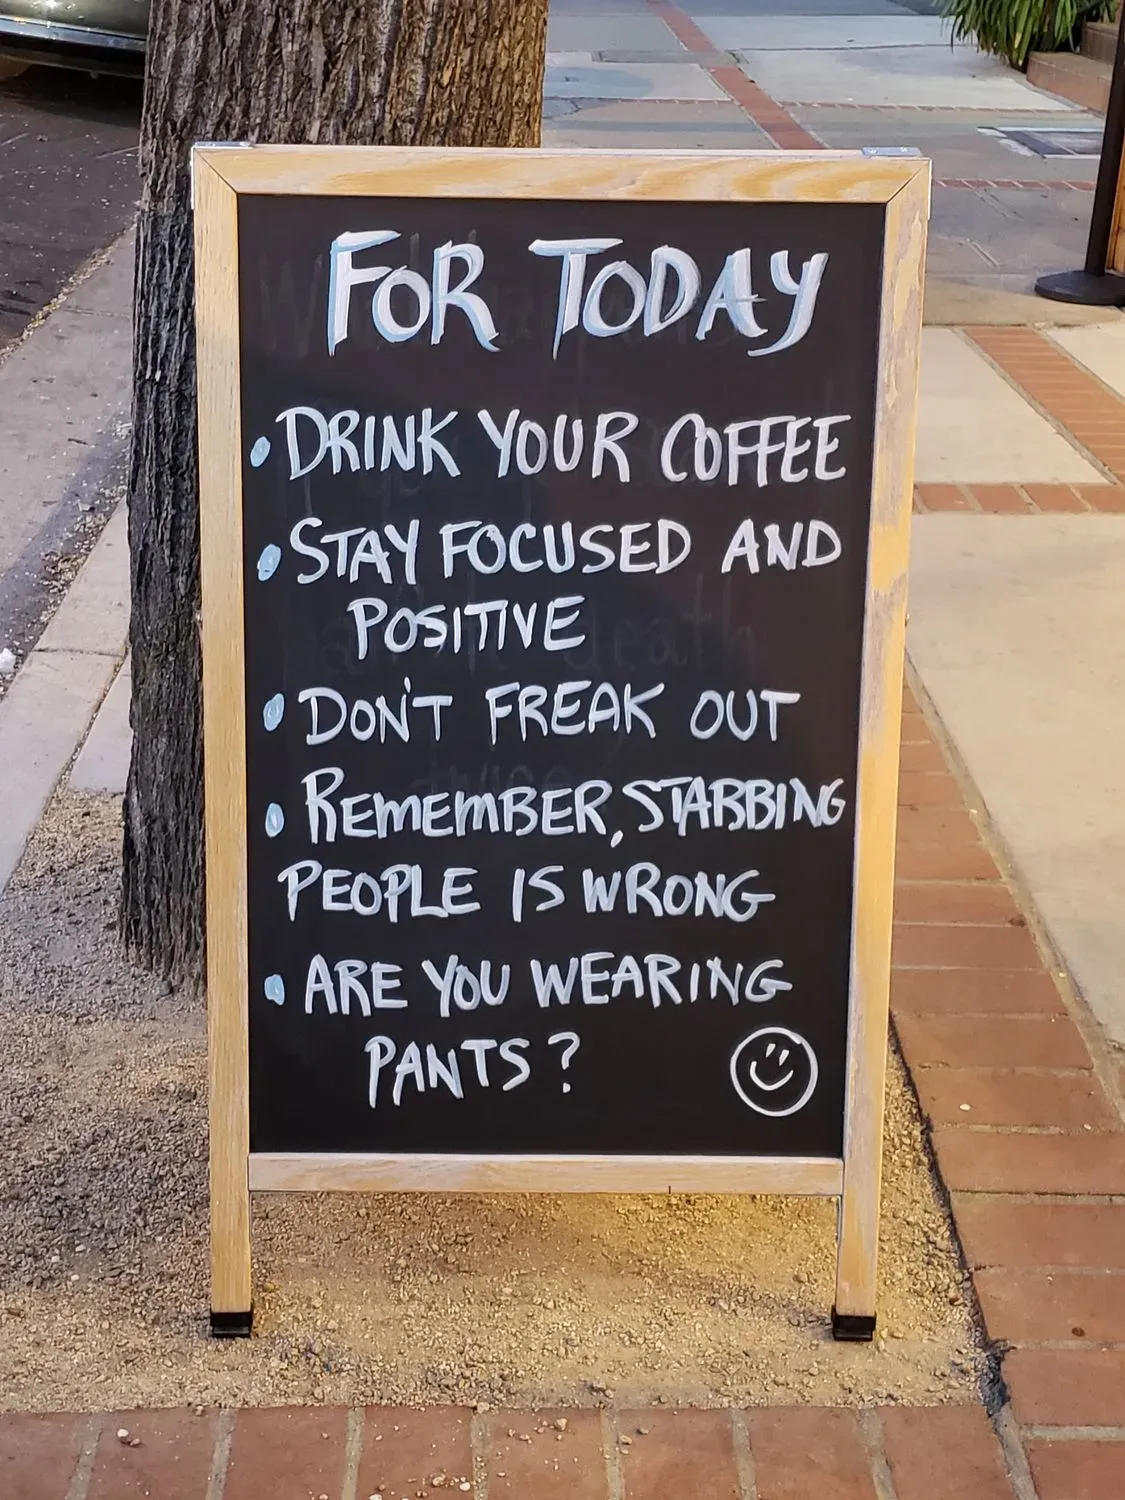 FOR TODAY
• DRINK YOUR COFFEE
• STAY FOCUSED AND
POSITIVE
• DON'T FREAK OUT
• REMEMBER, STABBING
PEOPLE IS WRONG
• ARE YOU WEARING
PANTS?